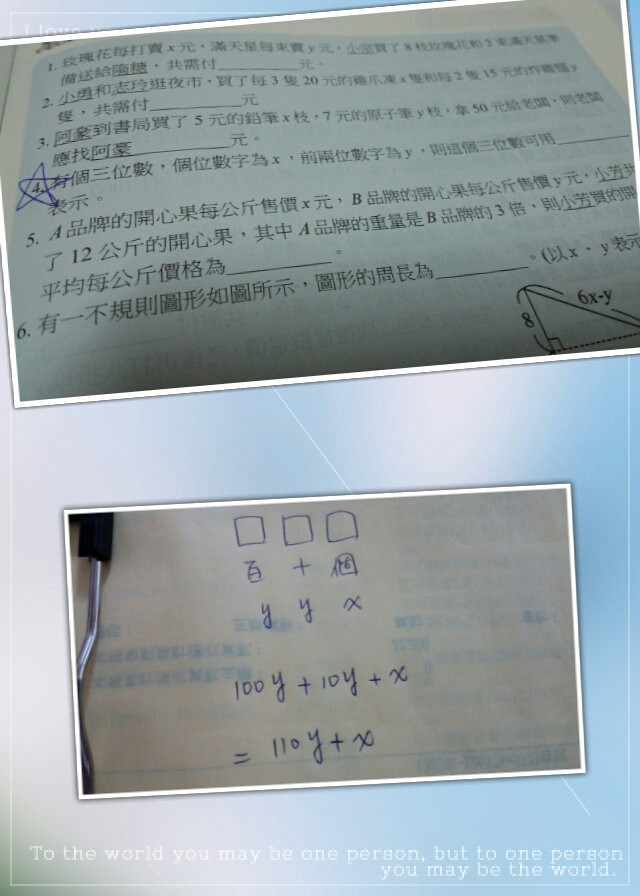 I love
1. 玫瑰花每打賣 x 元，滿天星每束賣 y 元，小芬買了 8 枝玫瑰花和 2 束滿天星準
備送給隔糖，共需付　　　元。
2. 小勇和志玲逛夜市，買了每 3 隻 20 元的雞爪凍 x 隻和每 2 隻 15 元的炸雞翅 y
隻，共需付　　　元
3. 阿豪到書局買了 5 元的鉛筆 x 枝，7 元的原子筆 y 枝，拿 50 元給老闆，則老闆
應找阿豪　　　元。
4. 有個三位數，個位數字為 x，前兩位數字為 y，則這個三位數可用
表示。
5. A 品牌的開心果每公斤售價 x 元，B 品牌的開心果每公斤售價 y 元，小芳共
了 12 公斤的開心果，其中 A 品牌的重量是 B 品牌的 3 倍，則小芳買的開
平均每公斤價格為　　　。
6. 有一不規則圖形如圖所示，圖形的周長為　　　。(以 x、y 表示
6x-y
8
百 十 個
y y x
100y + 10y + x
= 110y + x
To the world you may be one person, but to one person
you may be the world.